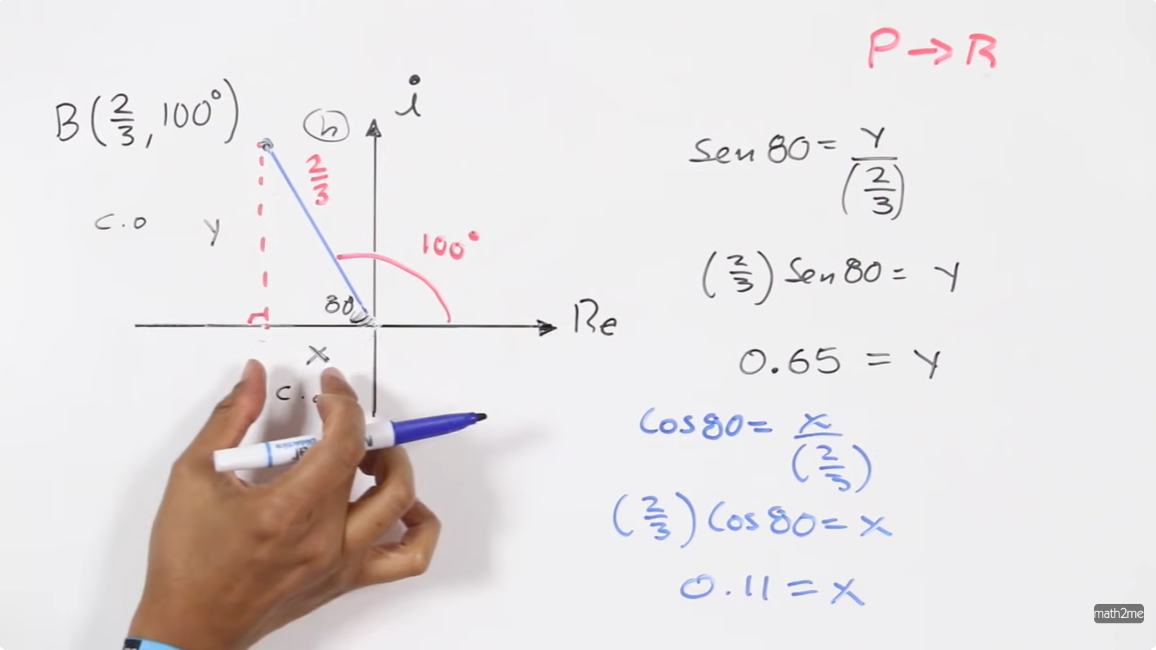 P → R
i
B(2/3, 100°)
h
2/3
c.o
y
100°
80
Re
x
c.
sen 80 = y/(2/3)
(2/3) sen 80 = y
0.65 = y
cos 80 = x/(2/3)
(2/3) cos 80 = x
0.11 = x
math2me